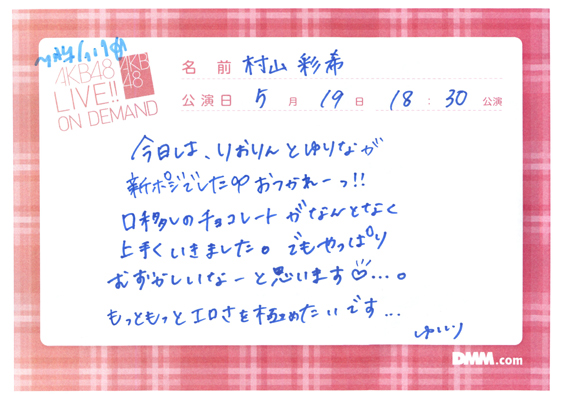 AKB48
LIVE!!
ON DEMAND
AKB
48
名前 村山 彩希
公演日 5月19日 18:30公演
今日は、りおりんとゆりなが
新ポジでした おつかれーっ!!
口移しのチョコレートがなんとなく
上手くいきました。でもやっぱり
むずかしいなーと思います♡...。
もっともっとエロさを極めたいです...
ゆいり
DMM.com